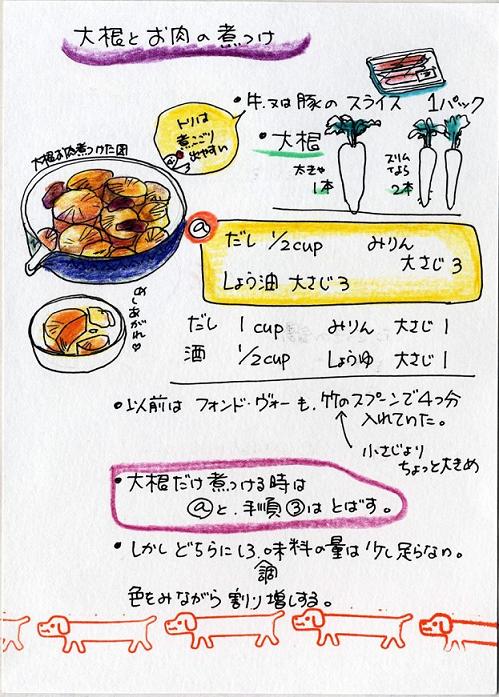 大根とお肉の煮つけ
・牛.又は豚の スライス 1パック
トリは
煮こごり
出やすい
・大根
大根お肉煮つけた図
太きゃ
1本
スリム
てよろ
2本
ⓐ
だし 1/2cup みりん
大さじ3
しょう油 大さじ3
めしあがれ♡
だし 1cup みりん 大さじ1
酒 1/2cup しょうゆ 大さじ1
・以前は フォンド・ヴォーも、竹のスプーンで4つ分
入れていた。
小さじより
ちょっと大きめ
・大根だけ煮つける時は
ⓐと、手順③はとばす。
・しかしどちらにしろ、味料の量は少し足らない。
調
色をみながら割り増しする。